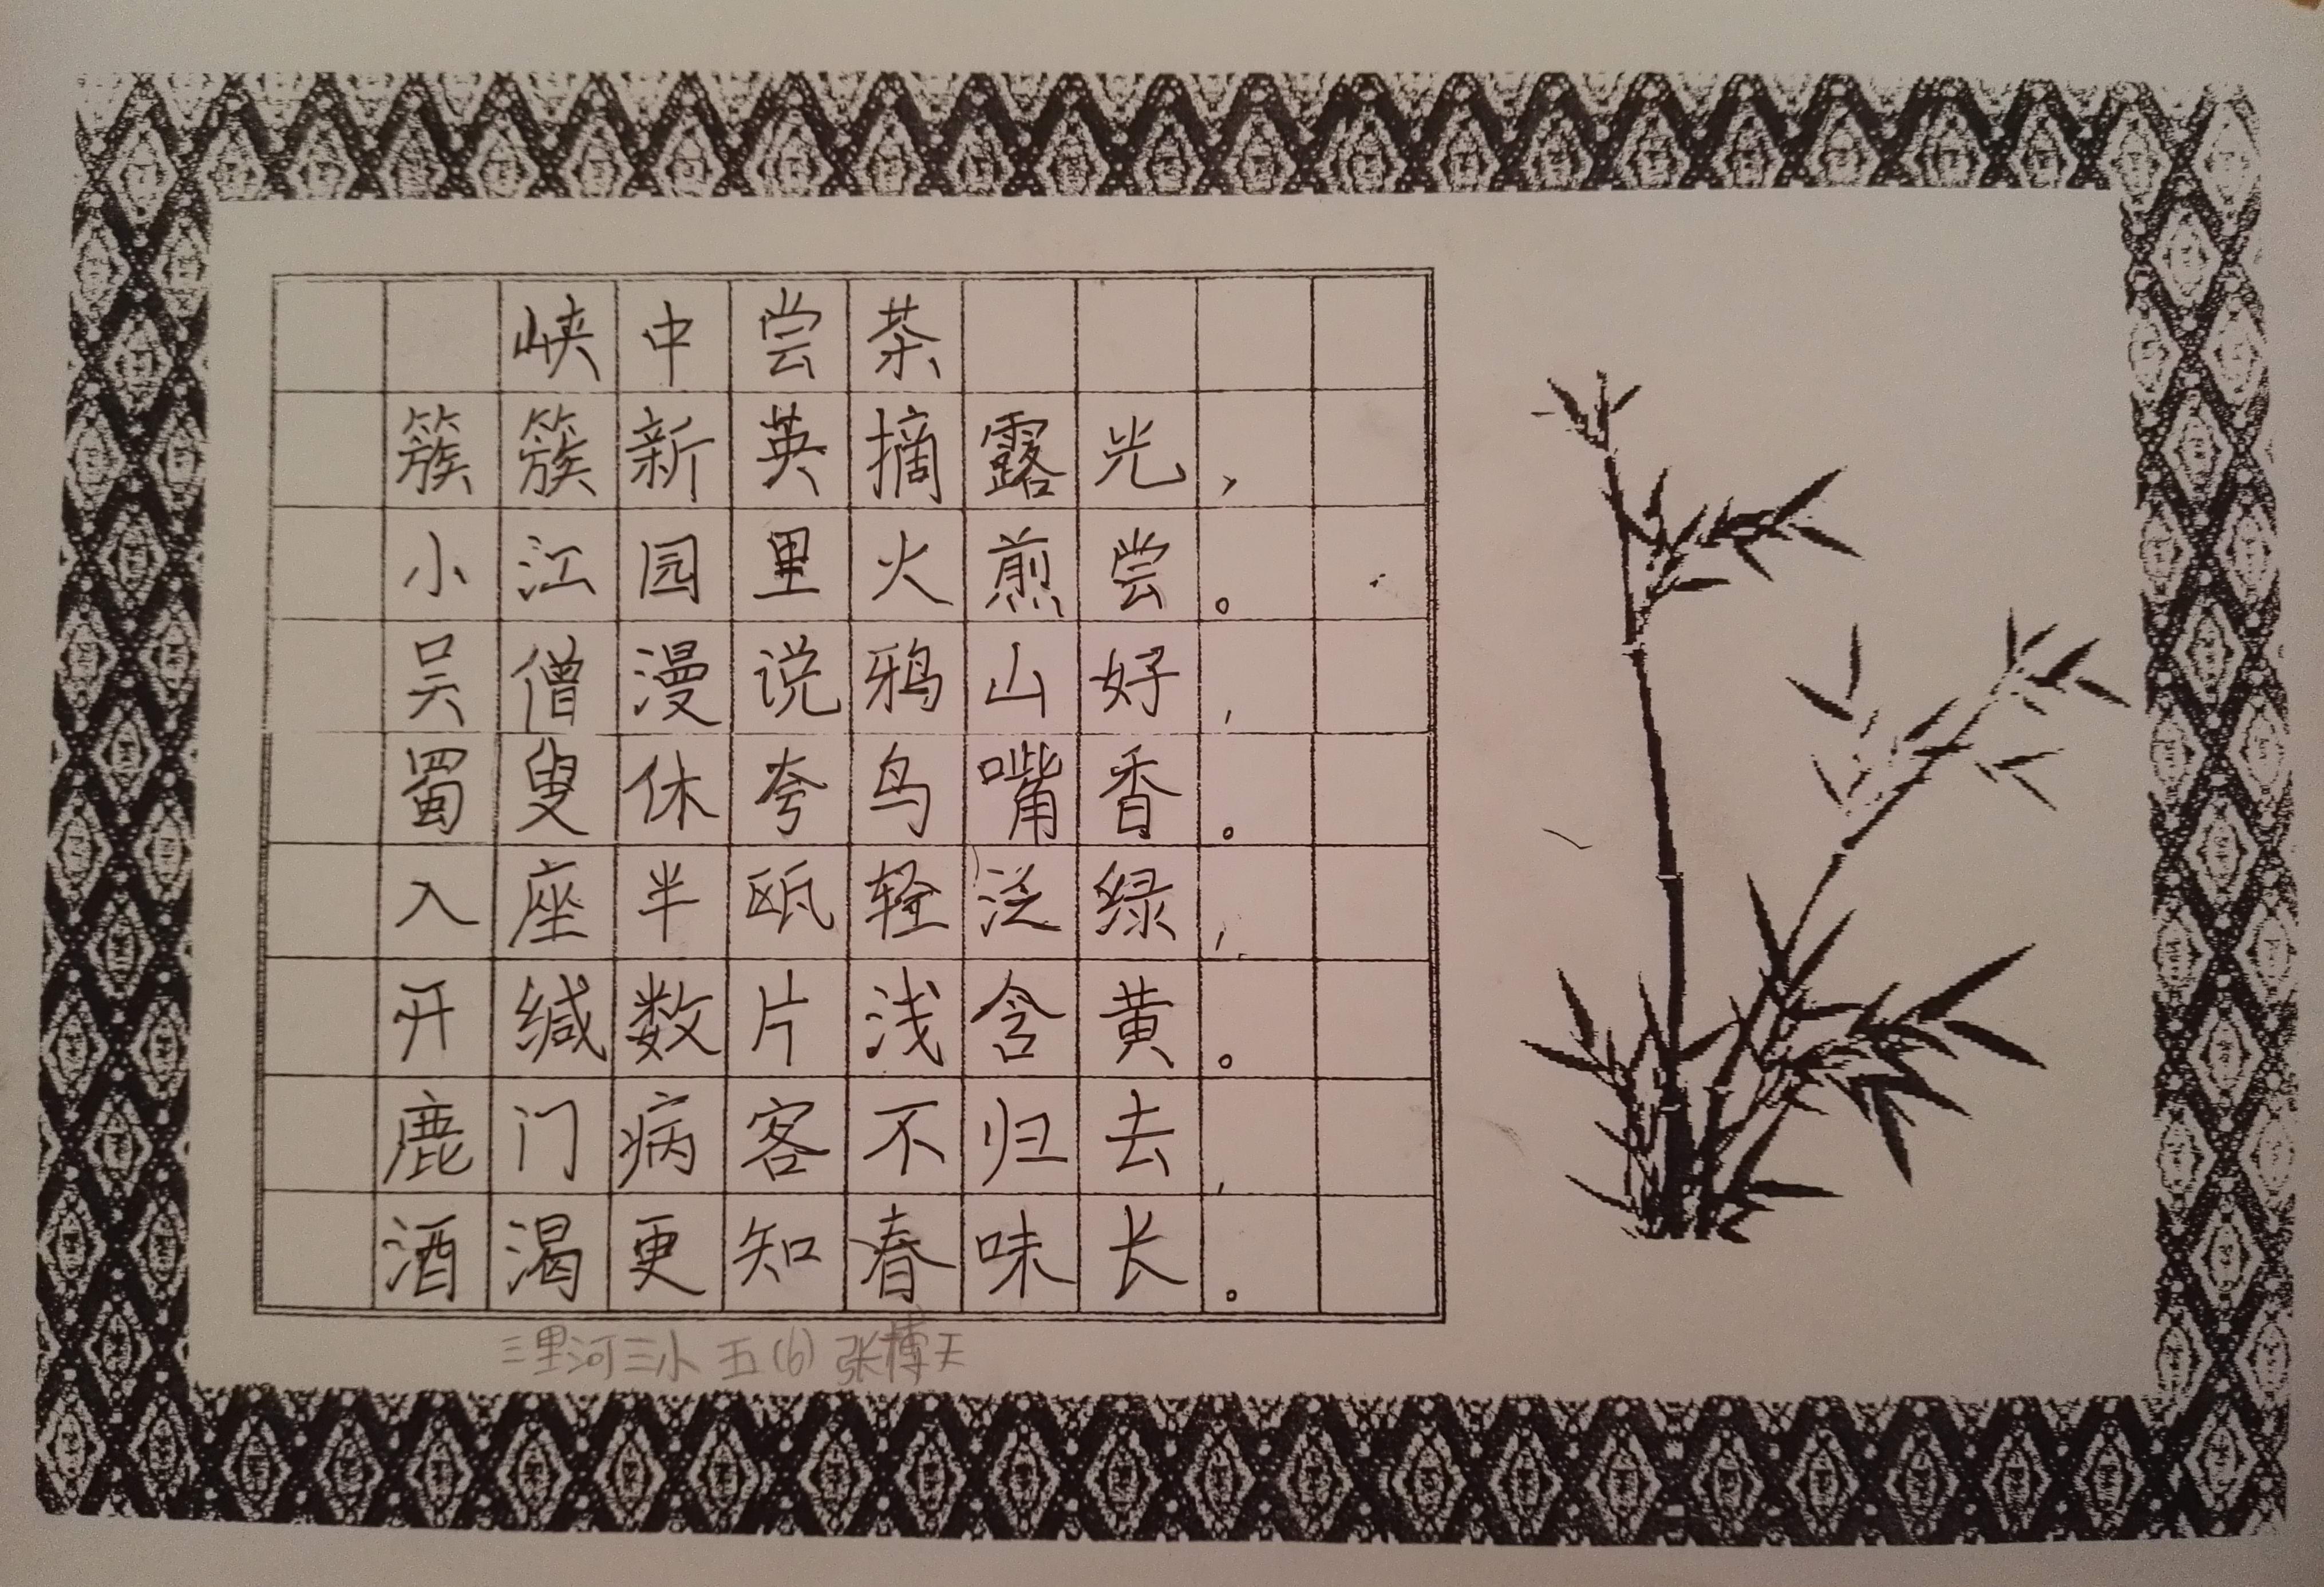 峡中尝茶
簇簇新英摘露光，
小江园里火煎尝。
吴僧漫说鸦山好，
蜀叟休夸鸟嘴香。
入座半瓯轻泛绿，
开缄数片浅含黄。
鹿门病客不归去，
酒渴更知春味长。
三里河三小 五(6) 张博天